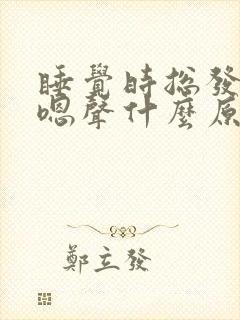 睡覺時總發
嗯聲什麼原
鄭立發